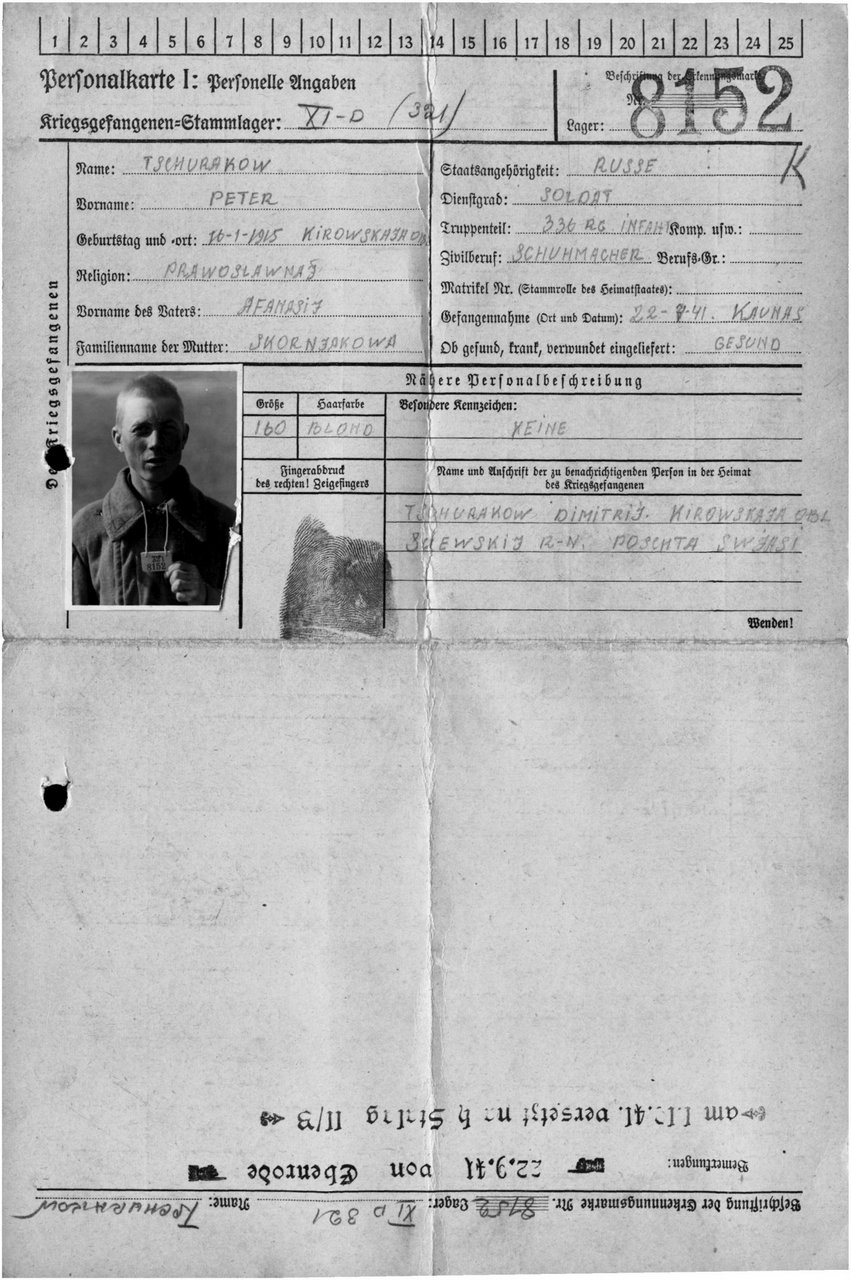 1 2 3 4 5 6 7 8 9 10 11 12 13 14 15 16 17 18 19 20 21 22 23 24 25
Personalkarte I: Personelle Angaben
Beschriftung der Erkennungsmarke
Kriegsgefangenen=Stammlager: XI-D (321)
Nr. 8152
Lager:
Des Kriegsgefangenen
Name: TSCHURAKOW
Staatsangehörigkeit: RUSSE
K
Vorname: PETER
Dienstgrad: SOLDAT
Geburtstag und -ort: 16-1-1915 KIROWSKAJA OBL
Truppenteil: 336 RG INFANT Komp. usw.:
Religion: PRAWOSLAWNAJ
Zivilberuf: SCHUHMACHER Berufs-Gr.:
Vorname des Vaters: AFANASIJ
Matrikel Nr. (Stammrolle des Heimatstaates):
Gefangennahme (Ort und Datum): 22-7-41. KAUNAS
Familienname der Mutter: SKORNJAKOWA
Ob gesund, krank, verwundet eingeliefert: GESUND
Nähere Personalbeschreibung
Größe
Haarfarbe
Besondere Kennzeichen:
160
BLOND
KEINE
Fingerabdruck
des rechten! Zeigefingers
Name und Anschrift der zu benachrichtigenden Person in der Heimat
des Kriegsgefangenen
TSCHURAKOW DIMITRIJ. KIROWSKAJA OBL
R-N. POSCHTA
8152
Wenden!
Beschriftung der Erkennungsmarke Nr. 8152 Lager: XI D 321 Name: TSCHURAKOW
Bemerkungen: 22.9.41 von Ebenrode
am 1.12.41. versetzt nach Stalag II/B